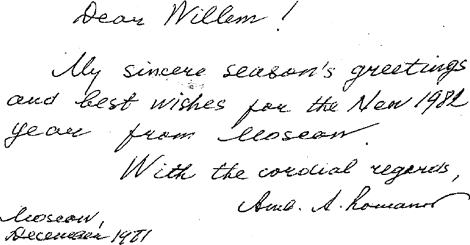 Dear Willem!
My sincere season's greetings
and best wishes for the New 1982
year from Moscow.
With the cordial regards,
Amb. A. Romanov
Moscow,
December 1981